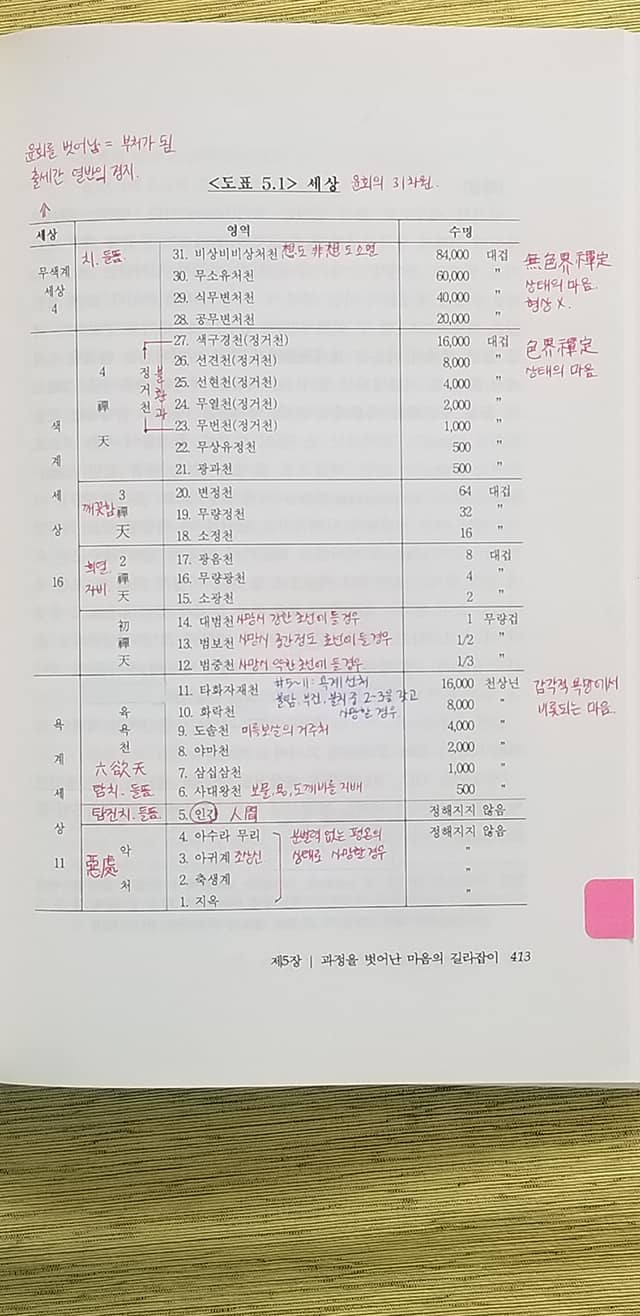 윤회를 벗어남 = 부처가 됨
출세간 열반의 경지.
↑
<도표 5.1> 세상 윤회의 31차원.
세상 영역 수명
치. 들뜸. 31. 비상비비상처천 想도 非想도 소멸 84,000 대겁 無色界禪定
무색계 30. 무소유처천 60,000 " 상태의 마음.
세상 29. 식무변처천 40,000 " 형상 X.
4 28. 공무변처천 20,000 "
27. 색구경천(정거천) 16,000 대겁 色界禪定
26. 선견천(정거천) 8,000 " 상태의 마음
4 정 불환과 25. 선현천(정거천) 4,000 "
禪 거 24. 무열천(정거천) 2,000 "
색 天 천 23. 무번천(정거천) 1,000 "
22. 무상유정천 500 "
계 21. 광과천 500 "
세 3 20. 변정천 64 대겁
禪 19. 무량정천 32 "
상 天 18. 소정천 16 "
희열 2 17. 광음천 8 대겁
16 자비 禪 16. 무량광천 4 "
天 15. 소광천 2 "
初 14. 대범천 사망시 강한 초선에 들 경우 1 무량겁
禪 13. 범보천 사망시 중간정도 초선에 들 경우 1/2 "
天 12. 범중천 사망시 약한 초선에 들 경우 1/3 "
11. 타화자재천 #5~11: 욕계 선처 16,000 천상년 감각적 욕망에서
육 10. 화락천 불탐, 부진, 불치 중 2~3을 갖고 사망할 경우 8,000 " 비롯되는 마음.
욕 욕 9. 도솔천 미륵보살의 거주처 4,000 "
계 천 8. 야마천 2,000 "
六欲天 7. 삼십삼천 1,000 "
세 탐치. 들뜸 6. 사대왕천 보물, 용, 도깨비들 지배 500 "
탐진치. 들뜸. 5. 인간 人間 정해지지 않음
상 4. 아수라 무리 분별력 없는 평온의 정해지지 않음
11 惡處 악 3. 아귀계 조상신 상태로 사망한 경우 "
처 2. 축생계 "
1. 지옥 "
제5장 | 과정을 벗어난 마음의 길라잡이 413